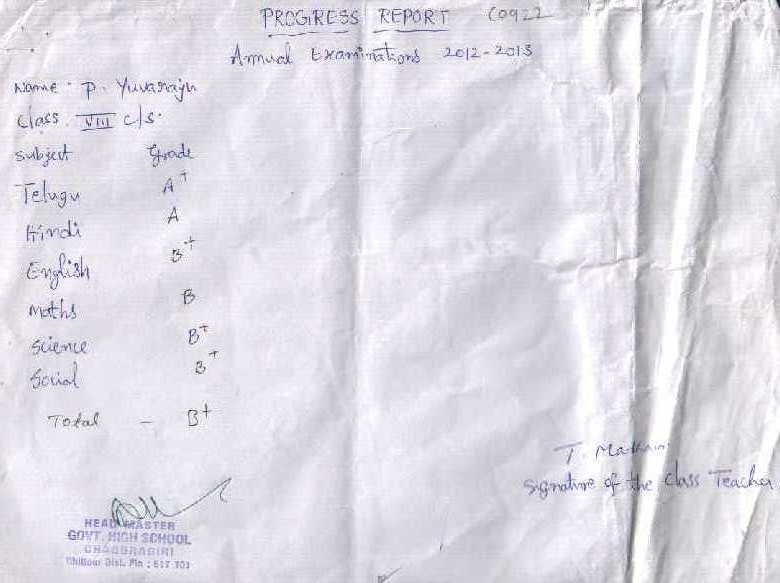 PROGRESS REPORT C0922
Annual Examinations 2012-2013
Name : P. Yuvaraju
Class : VIII c/s.
Subject Grade
Telugu A+
Hindi A
English B+
Maths B
Science B+
Social B+
Total - B+
T.
Signature of the Class Teacher
HEAD MASTER
GOVT. HIGH SCHOOL
CHANDRAGIRI
Chittoor Dist. Pin : 517 101